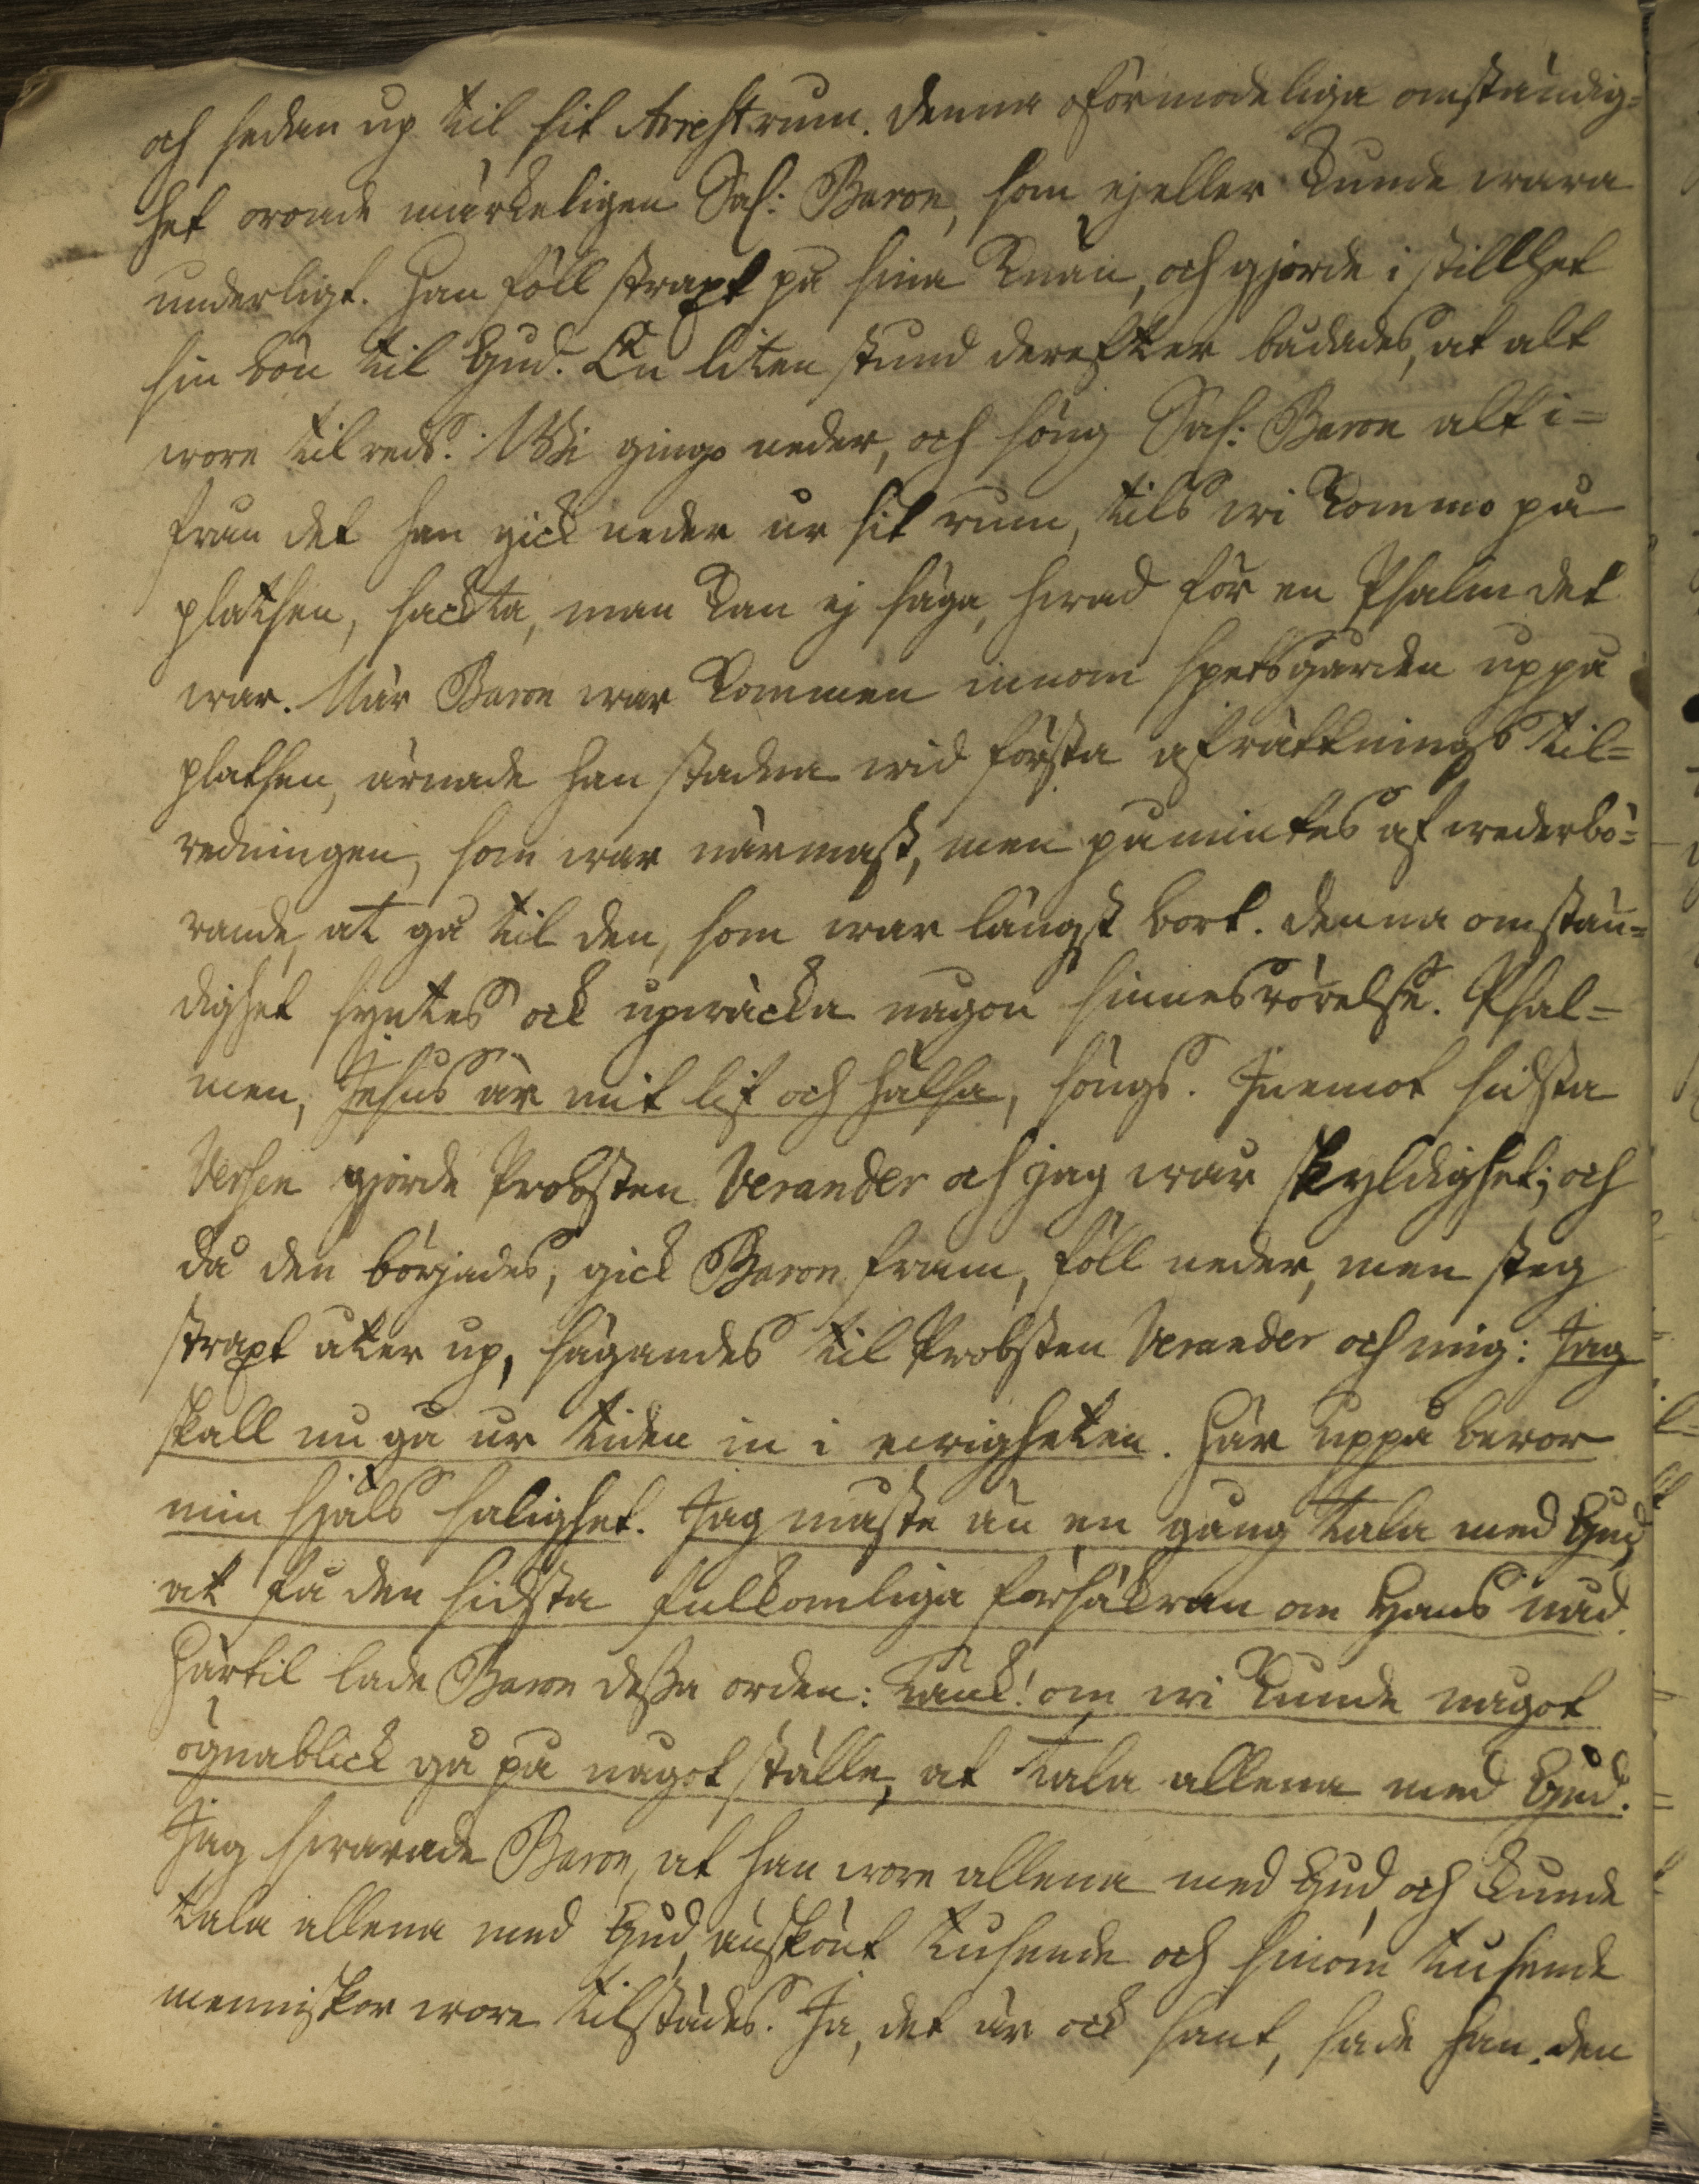 och sedan up til sit Arrestrum. Denna oförmodeliga omständig=
het orode märkeligen Sal: Baron, som ej eller kunde wara
underligt. Han föll straxt på sina knän, och gjorde i stillhet
sin bön til Gud. En liten stund derefter bådades, at alt
wore til reds. Wi gingo neder, och söng Sal: Baron alt i=
från det han gick neder ur sit rum, tils wi kommo på
platsen, sackta, man kan ej säga, hwad för en Psalm det
war. När Baron war kommen innom spetsgården uppå
platsen, ärnade han stadna wid första afrättnings til=
redningen, som war närmast, men påmintes af wederbö=
rande, at gå til den, som war längst bort. Denna omstän=
dighet syntes ock upwäcka någon sinnesrörelse. Psal=
men, Jesus är mit lif och hälsa, söngs. Inemot sidsta
Versen gjorde Probsten Verander och jag wår skyldighet; och
då den börjades, gick Baron fram, föll neder, men steg
straxt åter up, sägandes til Probsten Verander och mig: Jag
skall nu gå ur tiden in i ewigheten. Här uppå beror
min själs salighet. Jag måste än en gång tala med Gud,
at få den sidsta fullkomliga försäkran om Hans nåd.
Härtil lade Baron dessa orden: Tänk! om wi kunde något
ögnablick gå på något ställe, at tala allena med Gud.
Jag swarade Baron, at han wore allena med Gud, och kunde
tala allena med Gud, änskönt tusende och sinom tusende
menniskor wore tilstädes. Ja, det är ock sant, sade han. Den